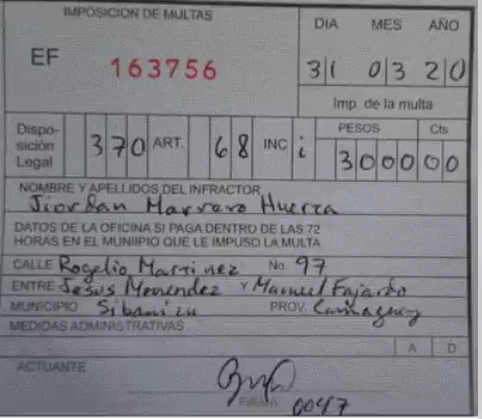 IMPOSICION DE MULTAS
DIA MES AÑO
EF 163756
31 03 20
Imp. de la multa
Dispo-
sición
Legal 370 ART. 68 INC i
PESOS Cts
3000 00
NOMBRE Y APELLIDOS DEL INFRACTOR
Jiordan Marrero Huerta
DATOS DE LA OFICINA SI PAGA DENTRO DE LAS 72
HORAS EN EL MUNIIPIO QUE LE IMPUSO LA MULTA
CALLE Rogelio Martinez No. 97
ENTRE Jesus Menendez Y Manuel Fajardo
MUNICIPIO Sibanicu PROV. Camaguey
MEDIDAS ADMINISTRATIVAS
A D
ACTUANTE
FIRMA 0047